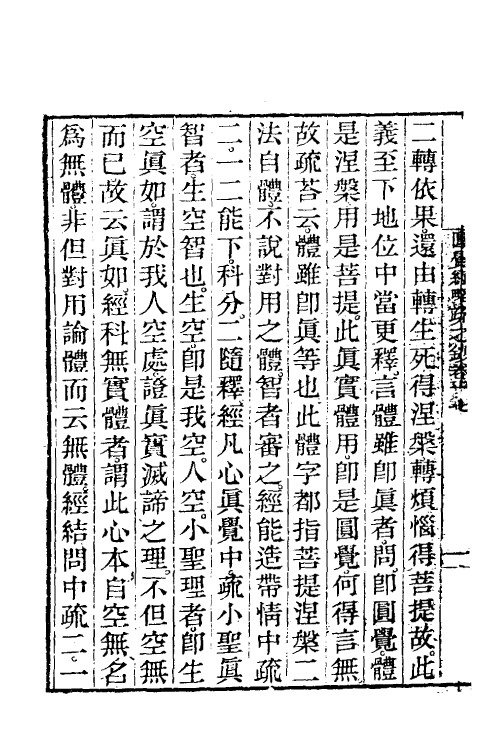 二轉依果還由轉生死得涅槃轉煩惱得菩提故此
義至下地位中當更釋言體雖卽眞者問卽圓覺體
是涅槃用是菩提此眞實體用卽是圓覺何得言無
故疏荅云體雖卽眞等也此體字都指菩提涅槃二
法自體不說對用之體智者審之經能造帶情中疏
二一二能下科分二隨釋經凡心眞覺中疏小聖眞
智者生空智也生空卽是我空人空小聖理者卽生
空眞如謂於我人空處證眞實滅諦之理不但空無
而已故云眞如經科無實體者謂此心本自空無名
爲無體非但對用論體而云無體經結問中疏二一